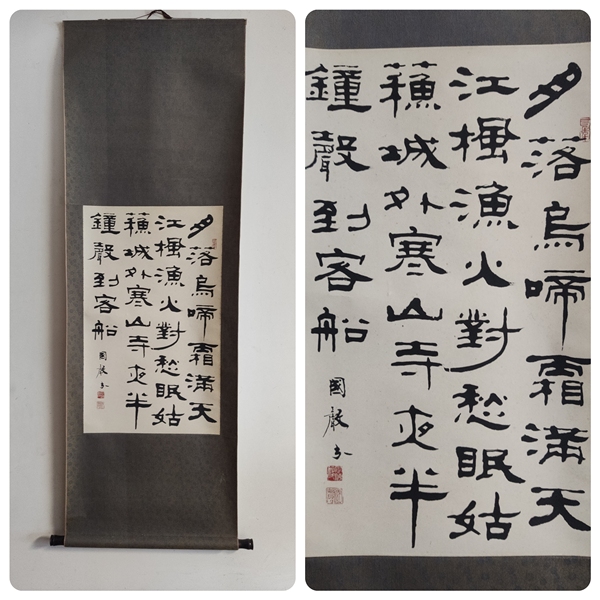 月落烏啼霜滿天
江楓漁火對愁眠姑
蘇城外寒山寺夜半
鐘聲到客船
月落烏啼霜滿天
江楓漁火對愁眠姑
蘇城外寒山寺夜半
鐘聲到客船